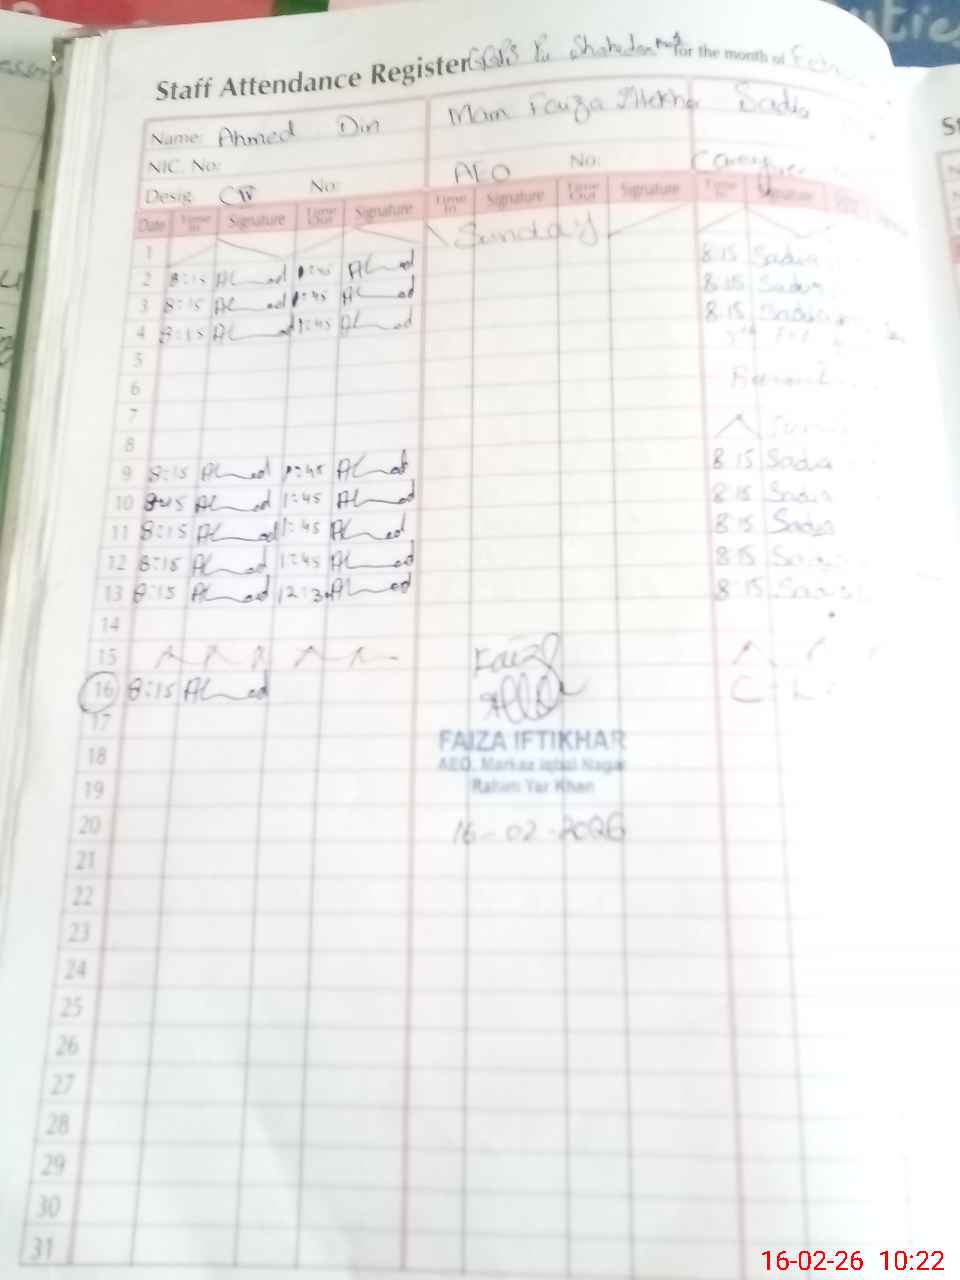 Staff Attendance Register for the month of
Name: Ahmed Din Mam Faiza Iftekhar Sadia
NIC. No:
Desig: No: AEO No:
Date Time In Signature Time Out Signature Time In Signature Time Out Signature Time In Signature
1 Sunday
2 8:15 Ahmad 1:45 Ahmad 8:15 Sadia
3 8:15 Ahmad 1:45 Ahmad 8:15 Sadia
4 8:15 Ahmad 1:45 Ahmad 8:15 Sadia
5
6
7
8
9 8:15 Ahmad 1:45 Ahmad 8:15 Sadia
10 Ahmad 1:45 Ahmad 8:15 Sadia
11 8:15 Ahmad 1:45 Ahmad 8:15 Sadia
12 8:15 Ahmad 1:45 Ahmad 8:15
13 8:15 Ahmad 12:30 Ahmad 8:15
14
15 Faiza
16 8:15 Ahmad C-L
17
18 FAIZA IFTIKHAR
AEO, Markaz Iqbal Nagar
19 Rahim Yar Khan
20 16-02-2026
21
22
23
24
25
26
27
28
29
30
31
16-02-26 10:22